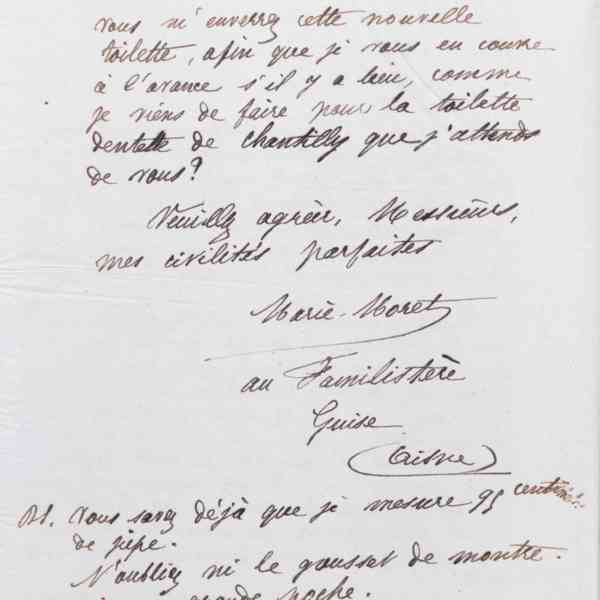 vous m'enverrez cette nouvelle
toilette, afin que je vous en couvre
à l'avance s'il y a lieu, comme
je viens de faire pour la toilette
dentelle de chantilly que j'attends
de vous?
Veuillez agréer, Messieurs,
mes civilités parfaites
Marie Moret
au Familistère
Guise
(Aisne)
Vous savez déjà que je mesure 95
de jupe.
N'oubliez ni le gousset de montre.
grande poche.